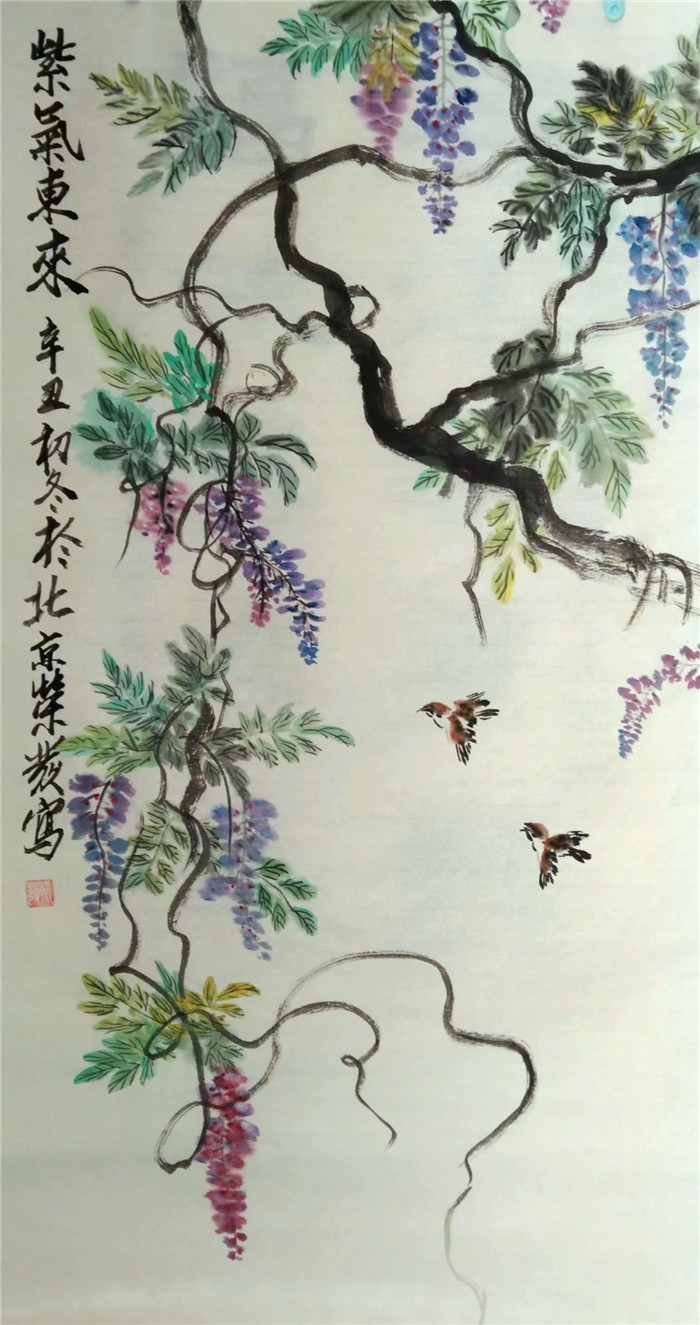 紫氣東來 辛丑初冬於北京榮發寫